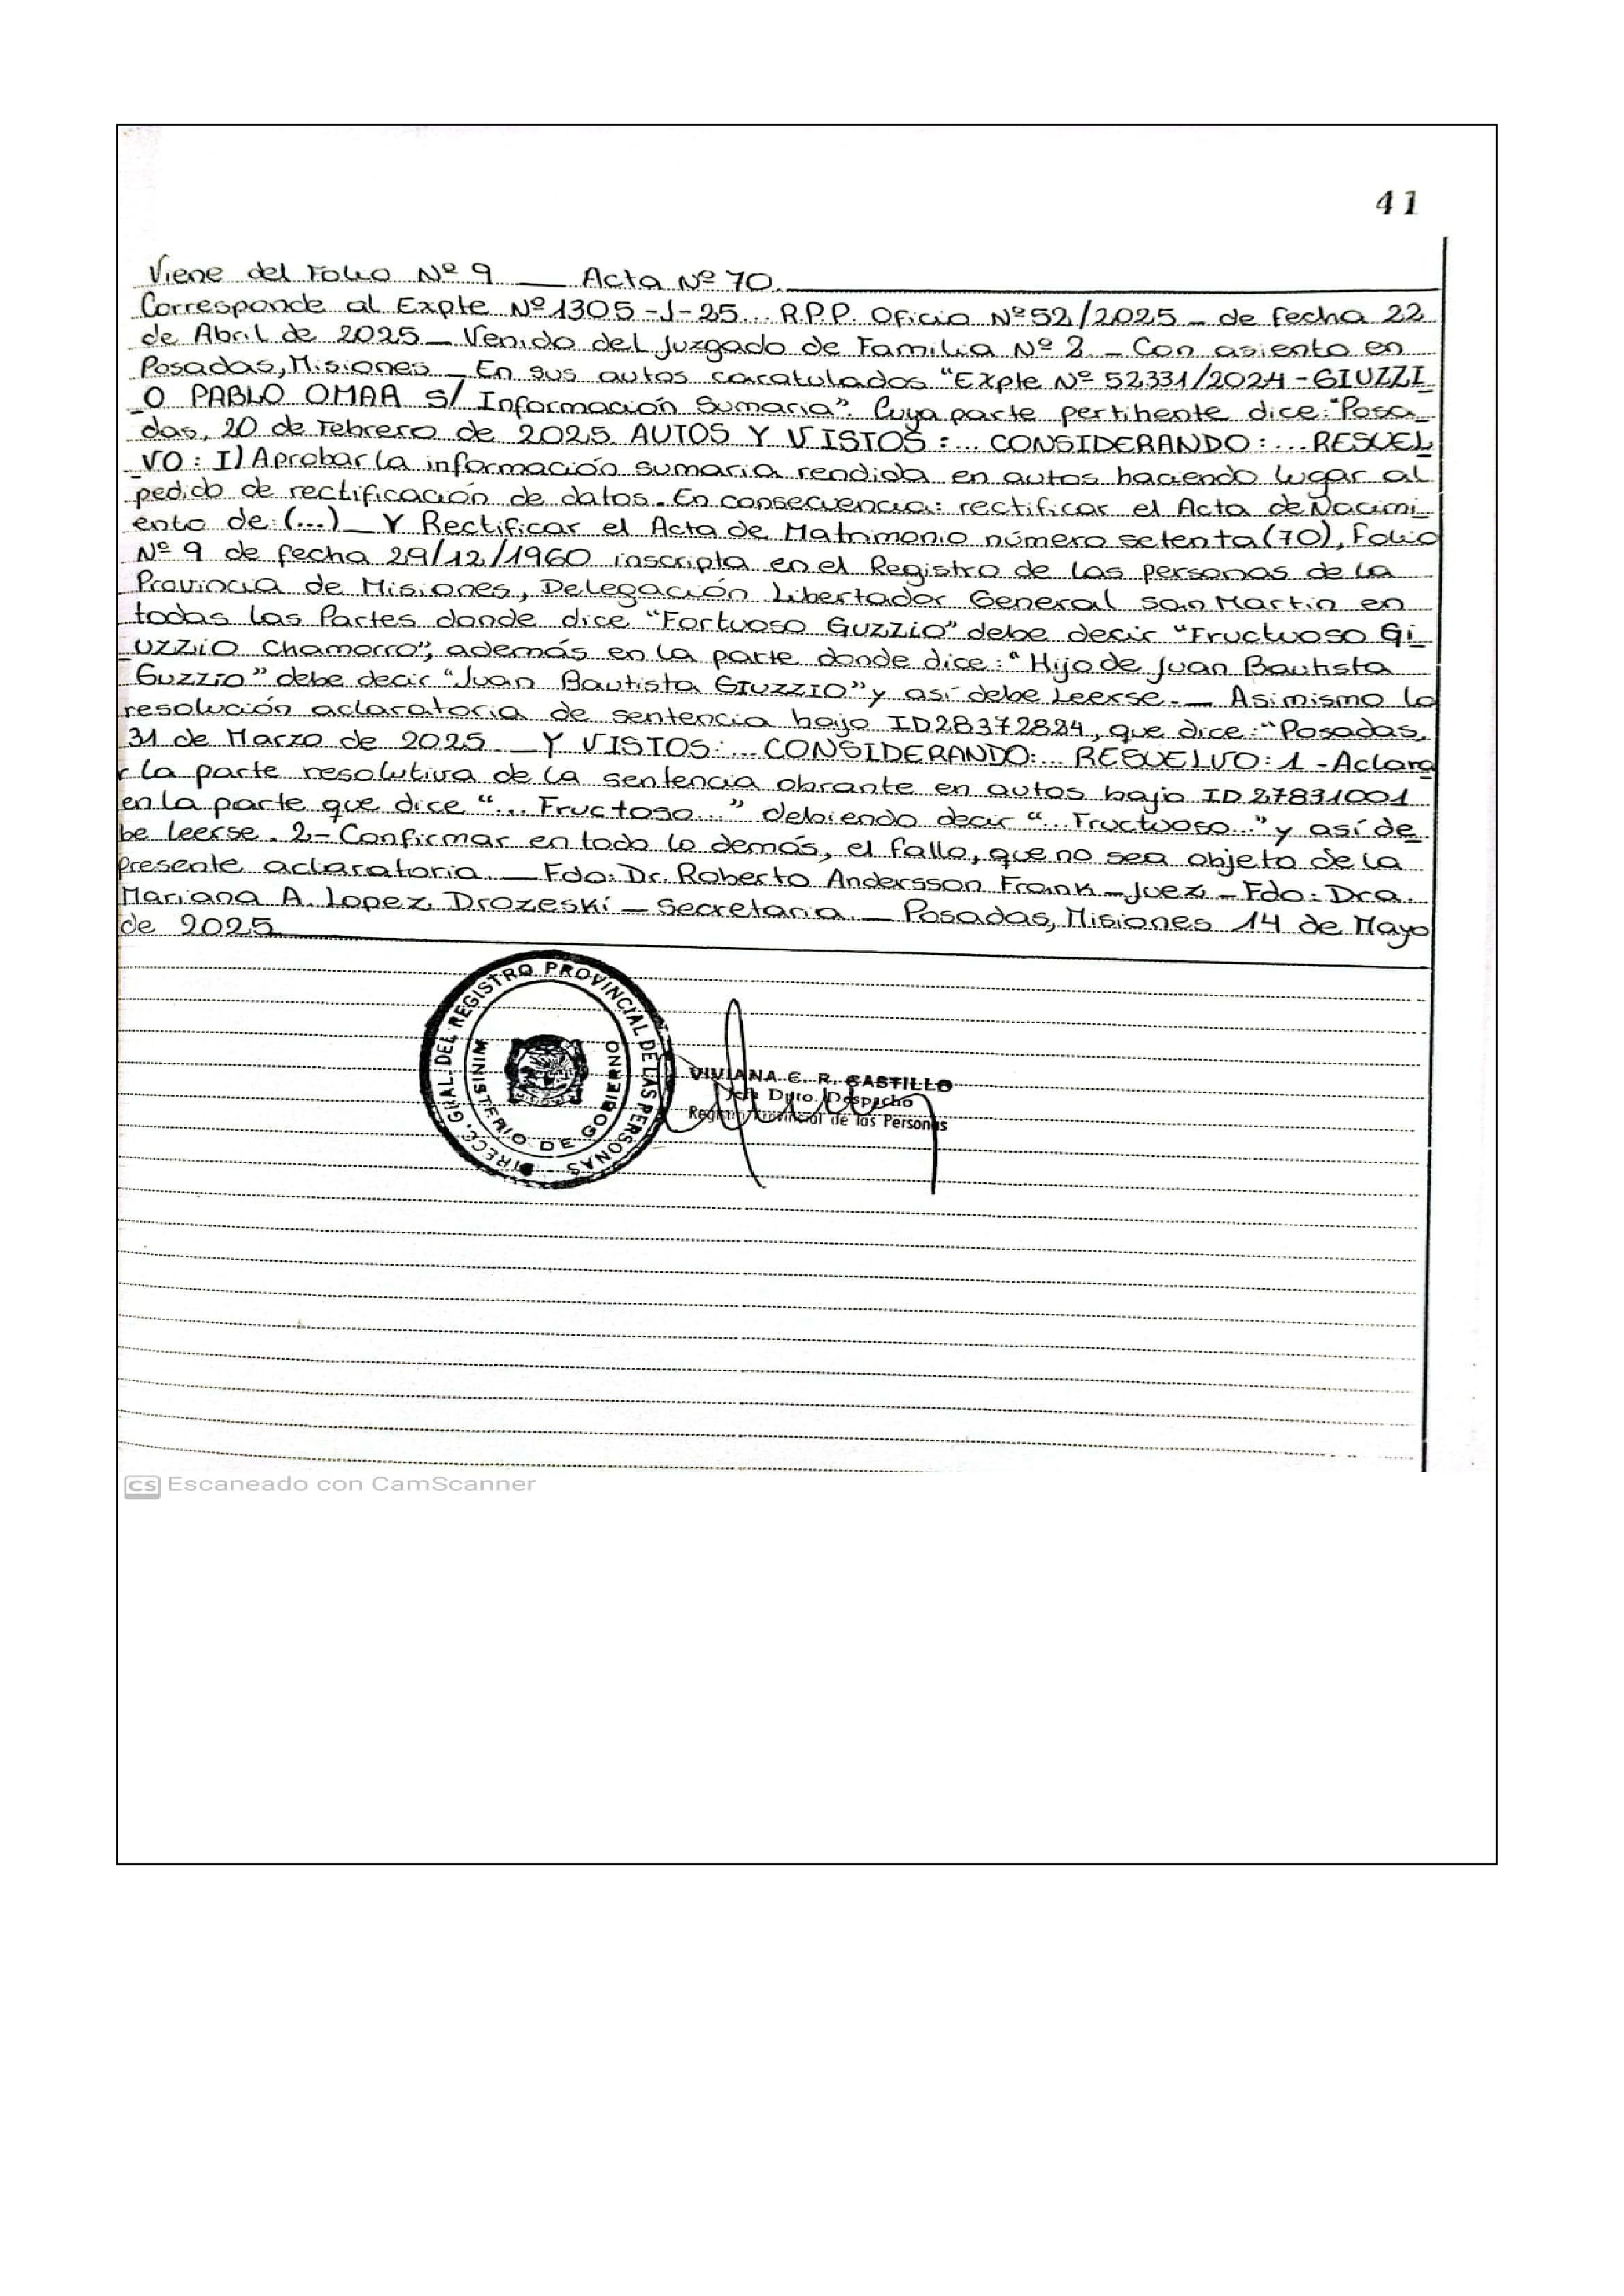 41
Viene del Folio Nº 9 __ Acta Nº 70.
Corresponde al Expte Nº 1305-J-25... R.P.P. Oficio Nº 52/2025 - de fecha 22
de Abril de 2025 _ Venido del Juzgado de Familia Nº 2 - Con asiento en
Posadas, Misiones _ En sus autos caratulados "Expte Nº 52331/2024 - GIUZZI
O PABLO OMAR S/ Información Sumaria". Cuya parte pertinente dice: "Posa_
das, 20 de Febrero de 2025. AUTOS Y VISTOS:... CONSIDERANDO:... RESUEL_
VO: I) Aprobar la información sumaria rendida en autos haciendo lugar al
pedido de rectificación de datos. En consecuencia: rectificar el Acta de Nacimi_
ento de: (...) _ Y Rectificar el Acta de Matrimonio número setenta (70), Folio
Nº 9 de fecha 29/12/1960 inscripta en el Registro de las personas de la
Provincia de Misiones, Delegación Libertador General San Martin en
todas las Partes donde dice "Fortuoso Guzzio" debe decir "Fructuoso Gi_
uzzio Chamorro", además en la parte donde dice: "Hijo de Juan Bautista
Guzzio" debe decir "Juan Bautista GIUZZIO" y así debe Leerse. _ Asimismo la
resolución aclaratoria de sentencia bajo ID28372824, que dice: "Posadas,
31 de Marzo de 2025 _ Y VISTOS:... CONSIDERANDO:... RESUELVO: 1 - Aclara
r la parte resolutiva de la sentencia obrante en autos bajo ID 27831001
en la parte que dice "... Fructoso..." debiendo decir "... Fructuoso..." y así de_
be leerse. 2.- Confirmar en todo lo demás, el fallo, que no sea objeto de la
Presente aclaratoria. _ Fdo: Dr. Roberto Andersson Frank - Juez - Fdo: Dra.
Mariana A. Lopez Drozeski - Secretaria. _ Posadas, Misiones 14 de Mayo
de 2025
DIRECC. GRAL. DEL REGISTRO PROVINCIAL DE LAS PERSONAS
MINISTERIO DE GOBIERNO
VIVIANA C. R. CASTILLO
Jefe Dpto. Despacho
Registro Provincial de las Personas
CS Escaneado con CamScanner